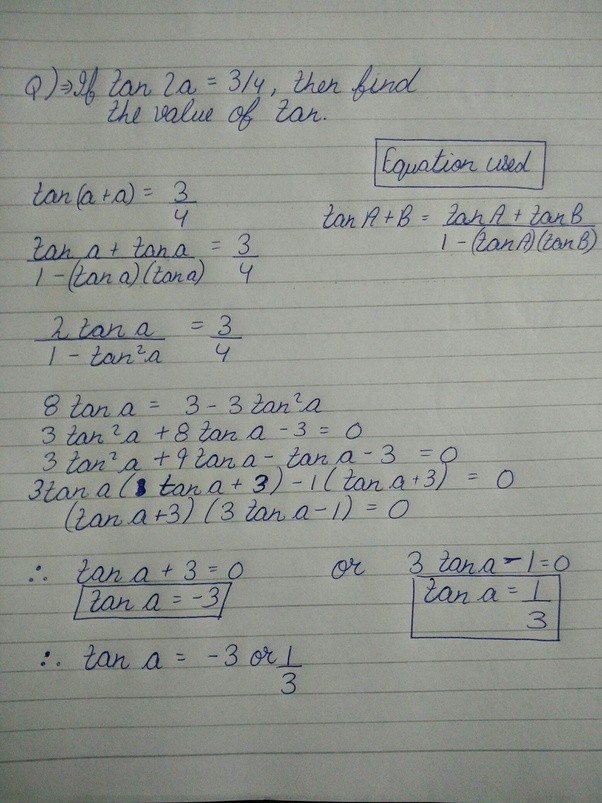 Q)⇒ If tan 2a = 3/4, then find
the value of tan.
Equation used
tan(a+a) = 3/4
tan A+B = tan A + tan B / 1-(tan A)(tan B)
tan a + tan a / 1-(tan a)(tan a) = 3/4
2 tan a / 1 - tan²a = 3/4
8 tan a = 3 - 3 tan²a
3 tan²a + 8 tan a - 3 = 0
3 tan²a + 9 tan a - tan a - 3 = 0
3 tan a ( tan a + 3) - 1 ( tan a + 3) = 0
(tan a + 3) (3 tan a - 1) = 0
∴ tan a + 3 = 0 or 3 tan a - 1 = 0
tan a = -3 tan a = 1/3
∴ tan a = -3 or 1/3